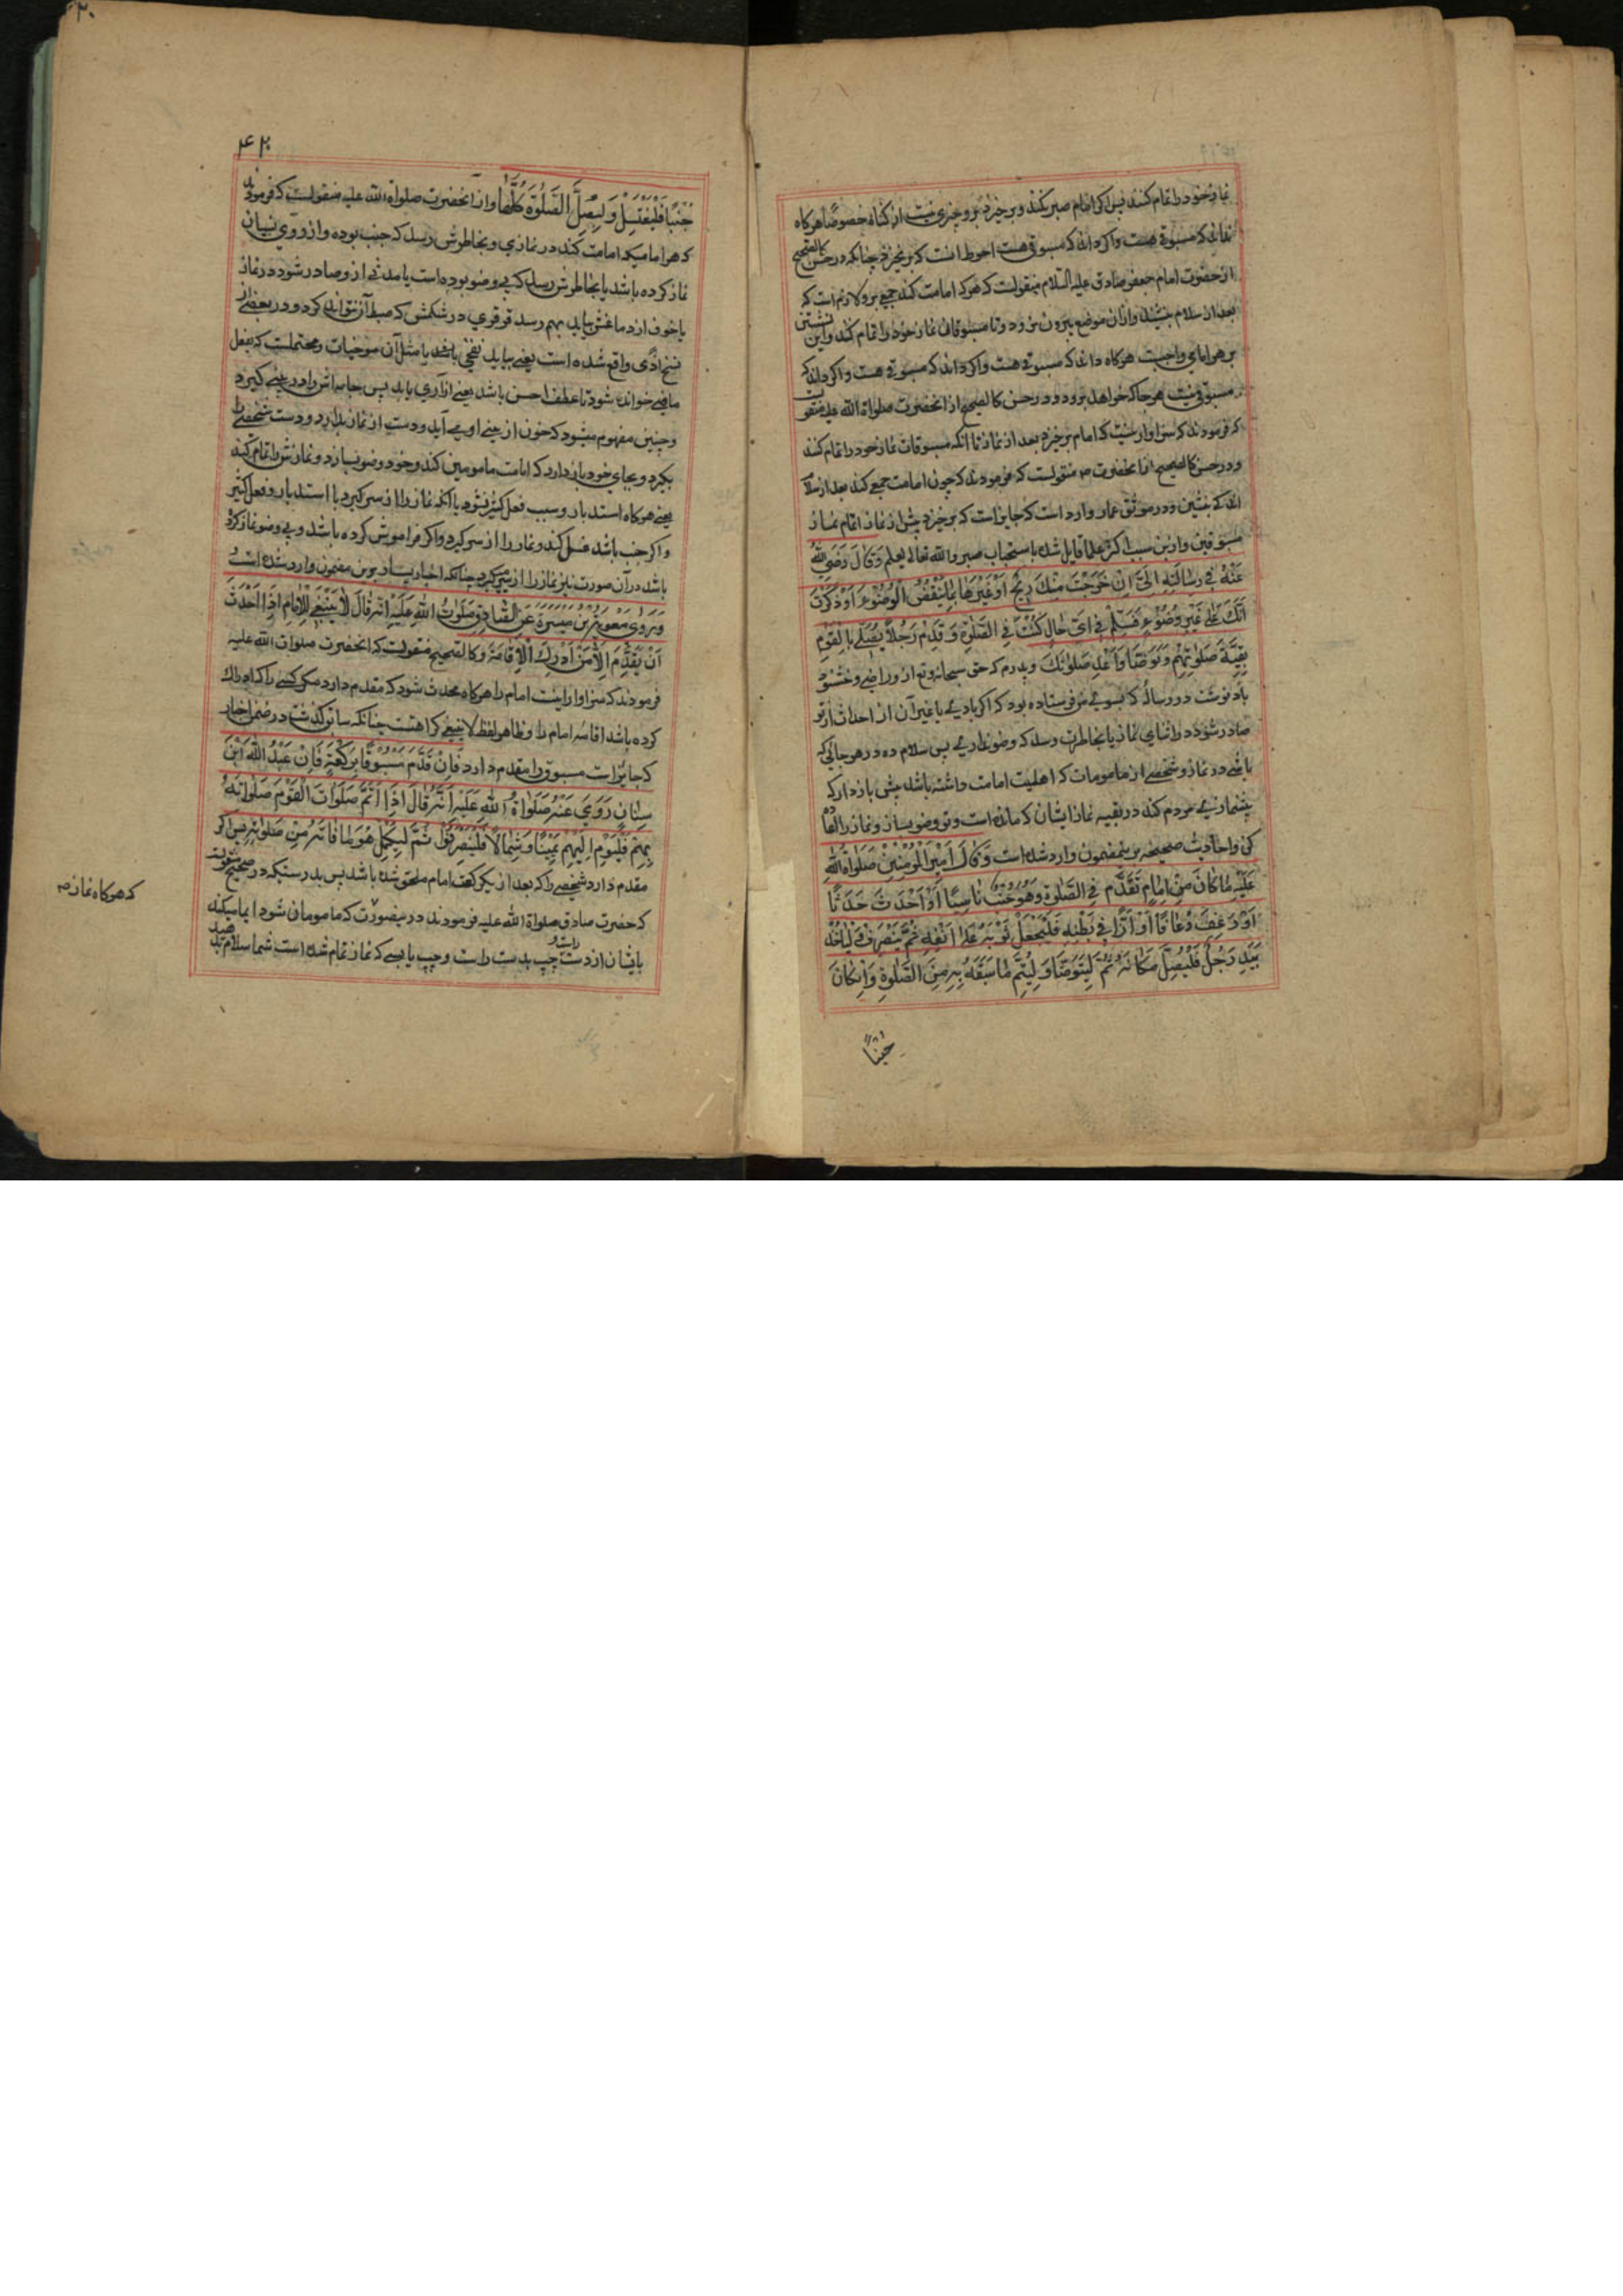 نماز خود را تمام کنند پس اگر امام صبر نکند و برخیزد برو چیزی نیست از گناه خصوصا هرگاه
نداند که مسبوقی هست و اگر داند که مسبوقی هست احوط انست که برنخیزد چنانکه در حسن کالصحیح
از حضرت امام جعفر صادق علیه السلام منقولست که هر که امامت کند جمعی برو لازم است که
بعد از سلام بنشیند و ازان موضع بیرون نرود تا مسبوقان نماز خود را تمام کنند و این نشستن
بر هر امامی واجبست هرگاه داند که مسبوقی هست و اگر داند که مسبوقی هست و اگر داند که
مسبوقی نیست هرجا که خواهد برود و در حسن کالصحیح از انحضرت صلواة الله علیه منقولست
که فرمودند که سزاوار نیست که امام برخیزد بعد از نماز تا آنکه مسبوقان نماز خود را تمام کنند
و در حسن کالصحیح از انحضرت منقولست که فرمودند که چون امامت جمعی کند بعد از سلام
اندکی بنشین و در موثق عمار وارد است که جایز است که برخیزد پیش از نماز اتمام نماز
مسبوقین و ازین سبب اکثر علما قایل شده با ستحباب صبر والله تعالی یعلم وَقَالَ رَضِیَ اللهُ
عَنْهُ فِی رِسَالَتِهِ اِلَیَّ اِنْ خَرَجَتْ مِنْكَ رِیْحٌ اَوْ غَیْرُهَا مِمَّا یَنْقُضُ الْوُضُوْءَ اَوْ ذَكَرْتَ
اَنَّكَ عَلٰی غَیْرِ وُضُوْءٍ فَسَلِّمْ فِی اَیِّ حَالٍ كُنْتَ فِی الصَّلٰوةِ وَقَدِّمْ رَجُلًا یُصَلِّی بِالْقَوْمِ
بَقِیَّةَ صَلٰوتِهِمْ وَتَوَضَّأْ وَاَعِدْ صَلٰوتَكَ و پدرم که حق سبحانه و تع ازو راضی و خشنود
باد نوشت در رساله که بسوی من فرستاده بود که اگر بادی یا غیر آن از احداث از تو
صادر شود در اثنای نماز یا بخاطرت رسد که وضو نداری پس سلام ده در هر جائی که
باشی در نماز و شخصی از مامومات که اهلیت امامت داشته باشد پیش بازدار که
پیشنمازی مردم کند در بقیه نماز ایشان که مانده است و تو وضو بساز و نماز را اعاده
کن و احادیث صحیحه برینمضمون وارد شده است وَقَالَ اَمِیْرُ الْمُؤْمِنِیْنَ صَلَوَاةُ اللهِ
عَلَیْهِ مَا كَانَ مِنْ اِمَامٍ تَقَدَّمَ فِی الصَّلٰوةِ وَهُوَ جُنُبٌ نَاسِیًا اَوْ اَحْدَثَ حَدَثًا
اَوْ رَعِفَ رُعَافًا اَوْ اَزًّا فِی بَطْنِهِ فَلْیَجْعَلْ ثَوْبَهُ عَلٰی اَنْفِهِ ثُمَّ یَنْصَرِفْ وَلْیَأْخُذْ
بِیَدِ رَجُلٍ فَلْیُصَلِّ مَكَانَهُ ثُمَّ لِیَتَوَضَّأْ وَلْیُتِمَّ مَا سَبَقَهُ بِهِ مِنَ الصَّلٰوةِ وَاِنْ كَانَ
جُنُبًا
۴۲۰
جُنُبًا فَلْیَغْتَسِلْ وَلْیُصَلِّ الصَّلٰوةَ كُلَّهَا و از آنحضرت صلواة الله علیه منقولست که فرمودند
که هر امامیکه امامت کند در نمازی و بخاطرش رسد که جنب بوده و از روی نسیان
نماز کرده باشد یا بخاطرش رسد که بی وضو بوده است یا حدثی ازو صادر شود در نماز
یا خون از دماغش بیاید بهم رسد قرقری در شکمش که ضبط آن نتواند کرد و در بعضی از
نسخ اذًی واقع شده است یعنی بیابد نفخی باشد یا مثل آن موذیات و محتملست که بفعل
ماضی خوانده شود تا عطف احسن باشد یعنی ازاری یابد پس جامه اش را در بینی گیرد
و چنین مفهوم میشود که خون از بینی او می آید و دست از نماز بدارد و دست شخصی را
بگیرد و بجای خود بازدارد که امامت مامومین کند و خود وضو بسازد و نمازش را تمام کند
یعنی هرگاه استدبار و سبب فعل کثیر نشود یا انکه نماز را از سر گیرد با استدبار و فعل کثیر
و اگر جنب باشد غسل کند و نماز را از سر گیرد و اگر فراموش کرده باشد و بی وضو نماز کرده
باشد در آن صورت نیز نماز را از سر گیرد چنانکه اخبار بسیار برین مضمون وارد شده است
وَرَوٰی مُعٰوِیَةُ بْنُ مَیْسَرَةَ عَنِ الصَّادِقِ صَلَوَاتُ اللهِ عَلَیْهِ اَنَّهُ قَالَ لَا یَنْبَغِی لِلْاِمَامِ اِذَا اَحْدَثَ
اَنْ یُقَدِّمَ اِلَّا مَنْ اَدْرَكَ الْاِقَامَةَ و کالصحیح منقولست که انحضرت صلوات الله علیه
فرمودند که سزاوار نیست امام را هرگاه محدث شود که مقدم دارد مگر کسی را که ادراک
کرده باشد اقامه امام را و ظاهر لفظ لا ینبغی کراهتست چنانکه سابق گذشت در ضمن اخبار
که جایز است مسبوق را مقدم دارد فَاِنْ قَدَّمَ مَسْبُوْقًا بِرَكْعَةٍ فَاِنَّ عَبْدَ اللهِ ابْنَ
سِنَانٍ رَوٰی عَنْهُ صَلَوَاةُ اللهِ عَلَیْهِ اَنَّهُ قَالَ اِذَا اَتَمَّ صَلَوَاتَ الْقَوْمِ صَلَوَاتَهُ
بِهِمْ فَلْیُوْمِ اِلَیْهِمْ یَمِیْنًا وَشِمَالًا فَلْیَنْصَرِفُوْا ثُمَّ لِیُكْمِلْ هُوَ مَا فَاتَهُ مِنْ صَلٰوتِهِ پس اگر
مقدم دارد شخصی را که بعد از یک رکعت امام ملحق شده باشد پس بدرستیکه در صحیح منقولست
که حضرت صادق صلواة الله علیه فرمودند در ینصورت که مامومان شود ایما میکند
بایشان از دست چپ بدست راست و چپ یا بسی که نماز تمام شده است شما سلام بدهید
که هرگاه نماز